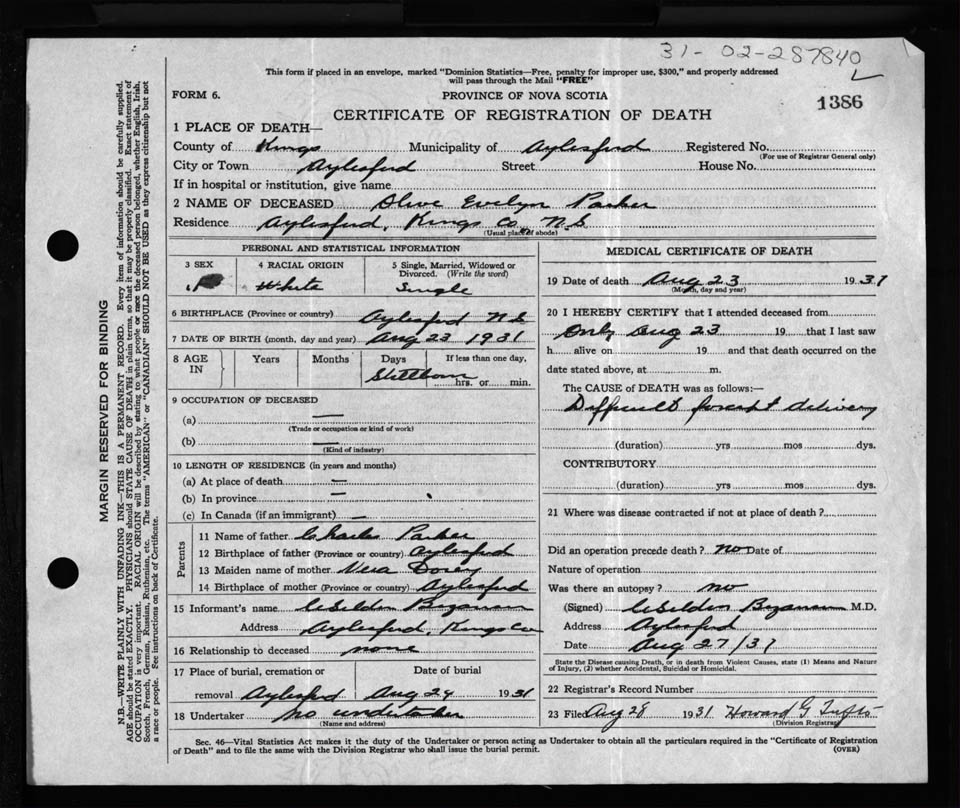 31-02-287840
This form if placed in an envelope, marked "Dominion Statistics—Free, penalty for improper use, $300," and properly addressed
will pass through the Mail "FREE"
FORM 6.
PROVINCE OF NOVA SCOTIA
1386
CERTIFICATE OF REGISTRATION OF DEATH
1 PLACE OF DEATH—
County of Kings Municipality of Aylesford Registered No.
(For use of Registrar General only)
City or Town Aylesford Street House No.
If in hospital or institution, give name
2 NAME OF DECEASED Olive Evelyn Parker
Residence Aylesford, Kings Co, N.S
(Usual place of abode)
PERSONAL AND STATISTICAL INFORMATION
3 SEX
4 RACIAL ORIGIN
White
5 Single, Married, Widowed or
Divorced. (Write the word)
Single
6 BIRTHPLACE (Province or country) Aylesford N.S
7 DATE OF BIRTH (month, day and year) Aug 23 1931
8 AGE IN
Years
Months
Days
If less than one day,
Stillborn hrs. or min.
9 OCCUPATION OF DECEASED
(a) —
(Trade or occupation or kind of work)
(b) —
(Kind of industry)
10 LENGTH OF RESIDENCE (in years and months)
(a) At place of death —
(b) In province —
(c) In Canada (if an immigrant) —
Parents
11 Name of father Charles Parker
12 Birthplace of father (Province or country) Aylesford
13 Maiden name of mother Vera
14 Birthplace of mother (Province or country) Aylesford
15 Informant's name Bezanson
Address Aylesford, Kings Co
16 Relationship to deceased none
17 Place of burial, cremation or
removal Aylesford
Date of burial
Aug 24 1931
18 Undertaker no undertaker
(Name and address)
MEDICAL CERTIFICATE OF DEATH
19 Date of death Aug 23 1931
(Month, day and year)
20 I HEREBY CERTIFY that I attended deceased from
only Aug 23 19 that I last saw
h alive on 19 and that death occurred on the
date stated above, at m.
The CAUSE of DEATH was as follows:—
Difficult forcept delivery
(duration) yrs mos dys.
CONTRIBUTORY
(duration) yrs mos dys.
21 Where was disease contracted if not at place of death?
Did an operation precede death? no Date of
Nature of operation
Was there an autopsy? no
(Signed) Bezanson M.D.
Address Aylesford
Date Aug 27/31
State the Disease causing Death, or in death from Violent Causes, state (1) Means and Nature
of Injury, (2) whether Accidental, Suicidal or Homicidal.
22 Registrar's Record Number
23 Filed Aug 28 1931 Howard G Tufts
(Division Registrar)
Sec. 46—Vital Statistics Act makes it the duty of the Undertaker or person acting as Undertaker to obtain all the particulars required in the "Certificate of Registration
of Death" and to file the same with the Division Registrar who shall issue the burial permit.
(OVER)
MARGIN RESERVED FOR BINDING
N.B.—WRITE PLAINLY WITH UNFADING INK—THIS IS A PERMANENT RECORD. Every item of information should be carefully supplied.
AGE should be stated EXACTLY. PHYSICIANS should STATE CAUSE OF DEATH in plain terms, so that it may be properly classified. Exact statement of
OCCUPATION is very important. RACIAL ORIGIN will be described by stating to what people or race the deceased person belonged, whether English, Irish,
Scotch, French, German, Russian, Ruthenian, etc. The terms "AMERICAN" or "CANADIAN" SHOULD NOT BE USED as they express citizenship but not
a race or people. See instructions on back of Certificate.